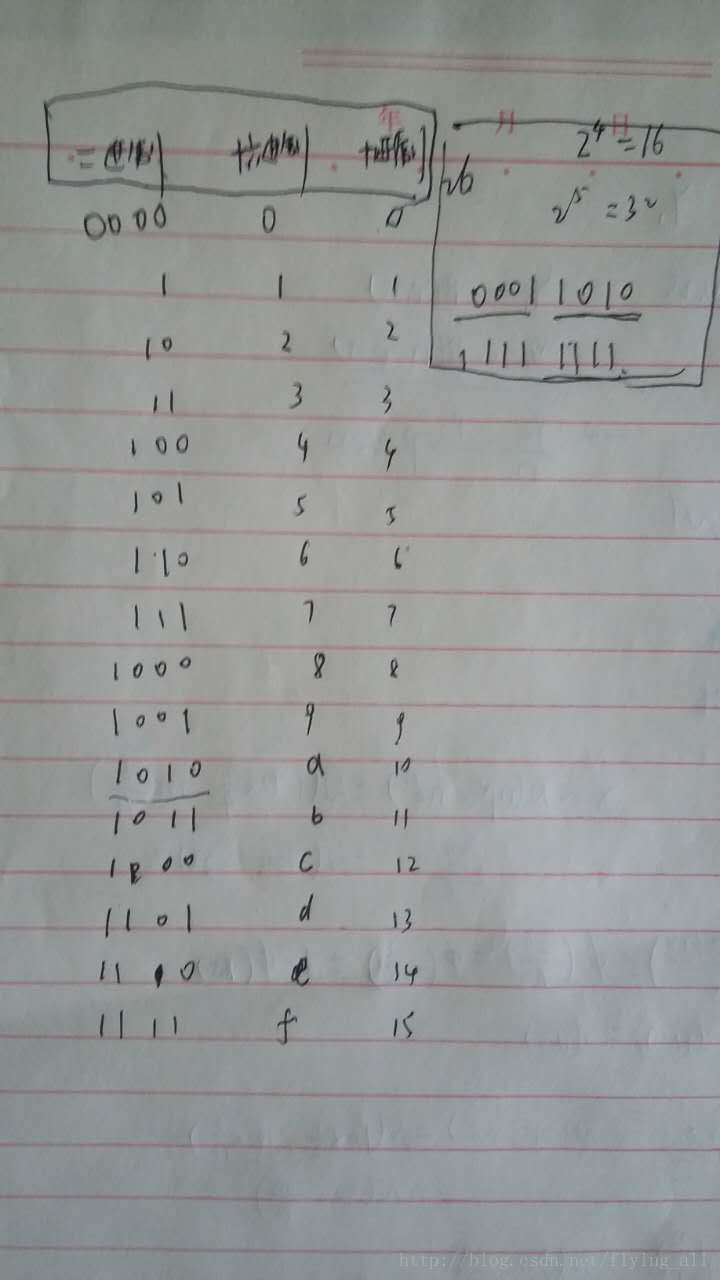 年 月 日
二进制 十六进制 十进制
0000 0 0
1 1 1
10 2 2
11 3 3
100 4 4
101 5 5
110 6 6
111 7 7
1000 8 8
1001 9 9
1010 a 10
1011 b 11
1100 c 12
1101 d 13
1110 e 14
1111 f 15
2⁴=16
26
2⁵=32
0001 1010
1111 1111
http://blog.csdn.net/flying_all